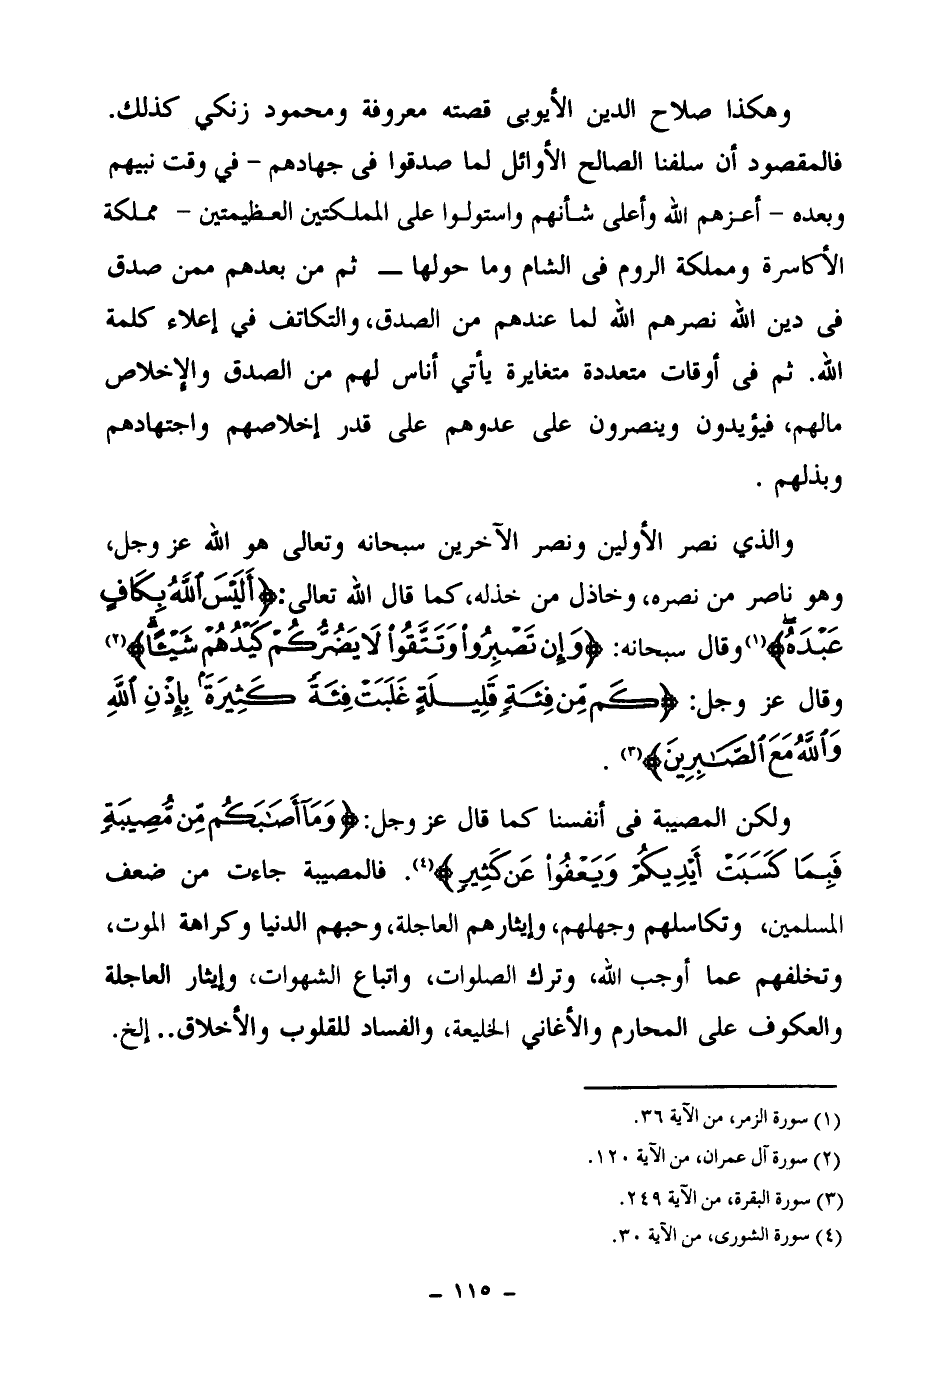 وهكذا صلاح الدين الأيوبى قصته معروفة ومحمود زنكي كذلك.
فالمقصود أن سلفنا الصالح الأوائل لما صدقوا فى جهادهم – في وقت نبيهم
وبعده – أعزهم الله وأعلى شأنهم واستولوا على المملكتين العظيمتين – مملكة
الأكاسرة ومملكة الروم فى الشام وما حولها – ثم من بعدهم ممن صدق
فى دين الله نصرهم الله لما عندهم من الصدق، والتكاتف في إعلاء كلمة
الله. ثم فى أوقات متعددة متغايرة يأتي أناس لهم من الصدق والإخلاص
مالهم، فيؤيدون وينصرون على عدوهم على قدر إخلاصهم واجتهادهم
وبذلهم .
والذي نصر الأولين ونصر الآخرين سبحانه وتعالى هو الله عز وجل،
وهو ناصر من نصره، وخاذل من خذله، كما قال الله تعالى: ﴿أَلَيْسَ ٱللَّهُ بِكَافٍ
عَبْدَهُۥ﴾(١) وقال سبحانه: ﴿وَإِن تَصْبِرُوا۟ وَتَتَّقُوا۟ لَا يَضُرُّكُمْ كَيْدُهُمْ شَيْـًٔا﴾(٢)
وقال عز وجل: ﴿كَم مِّن فِئَةٍ قَلِيلَةٍ غَلَبَتْ فِئَةً كَثِيرَةًۢ بِإِذْنِ ٱللَّهِ
وَٱللَّهُ مَعَ ٱلصَّـٰبِرِينَ﴾(٣) .
ولكن المصيبة فى أنفسنا كما قال عز وجل: ﴿وَمَآ أَصَـٰبَكُم مِّن مُّصِيبَةٍ
فَبِمَا كَسَبَتْ أَيْدِيكُمْ وَيَعْفُوا۟ عَن كَثِيرٍ﴾(٤). فالمصيبة جاءت من ضعف
المسلمين، وتكاسلهم وجهلهم، وإيثارهم العاجلة، وحبهم الدنيا وكراهة الموت،
وتخلفهم عما أوجب الله، وترك الصلوات، واتباع الشهوات، وإيثار العاجلة
والعكوف على المحارم والأغاني الخليعة، والفساد للقلوب والأخلاق.. إلخ.
(١) سورة الزمر، من الآية ٣٦.
(٢) سورة آل عمران، من الآية ١٢٠.
(٣) سورة البقرة، من الآية ٢٤٩.
(٤) سورة الشورى، من الآية ٣٠.
– ١١٥ –